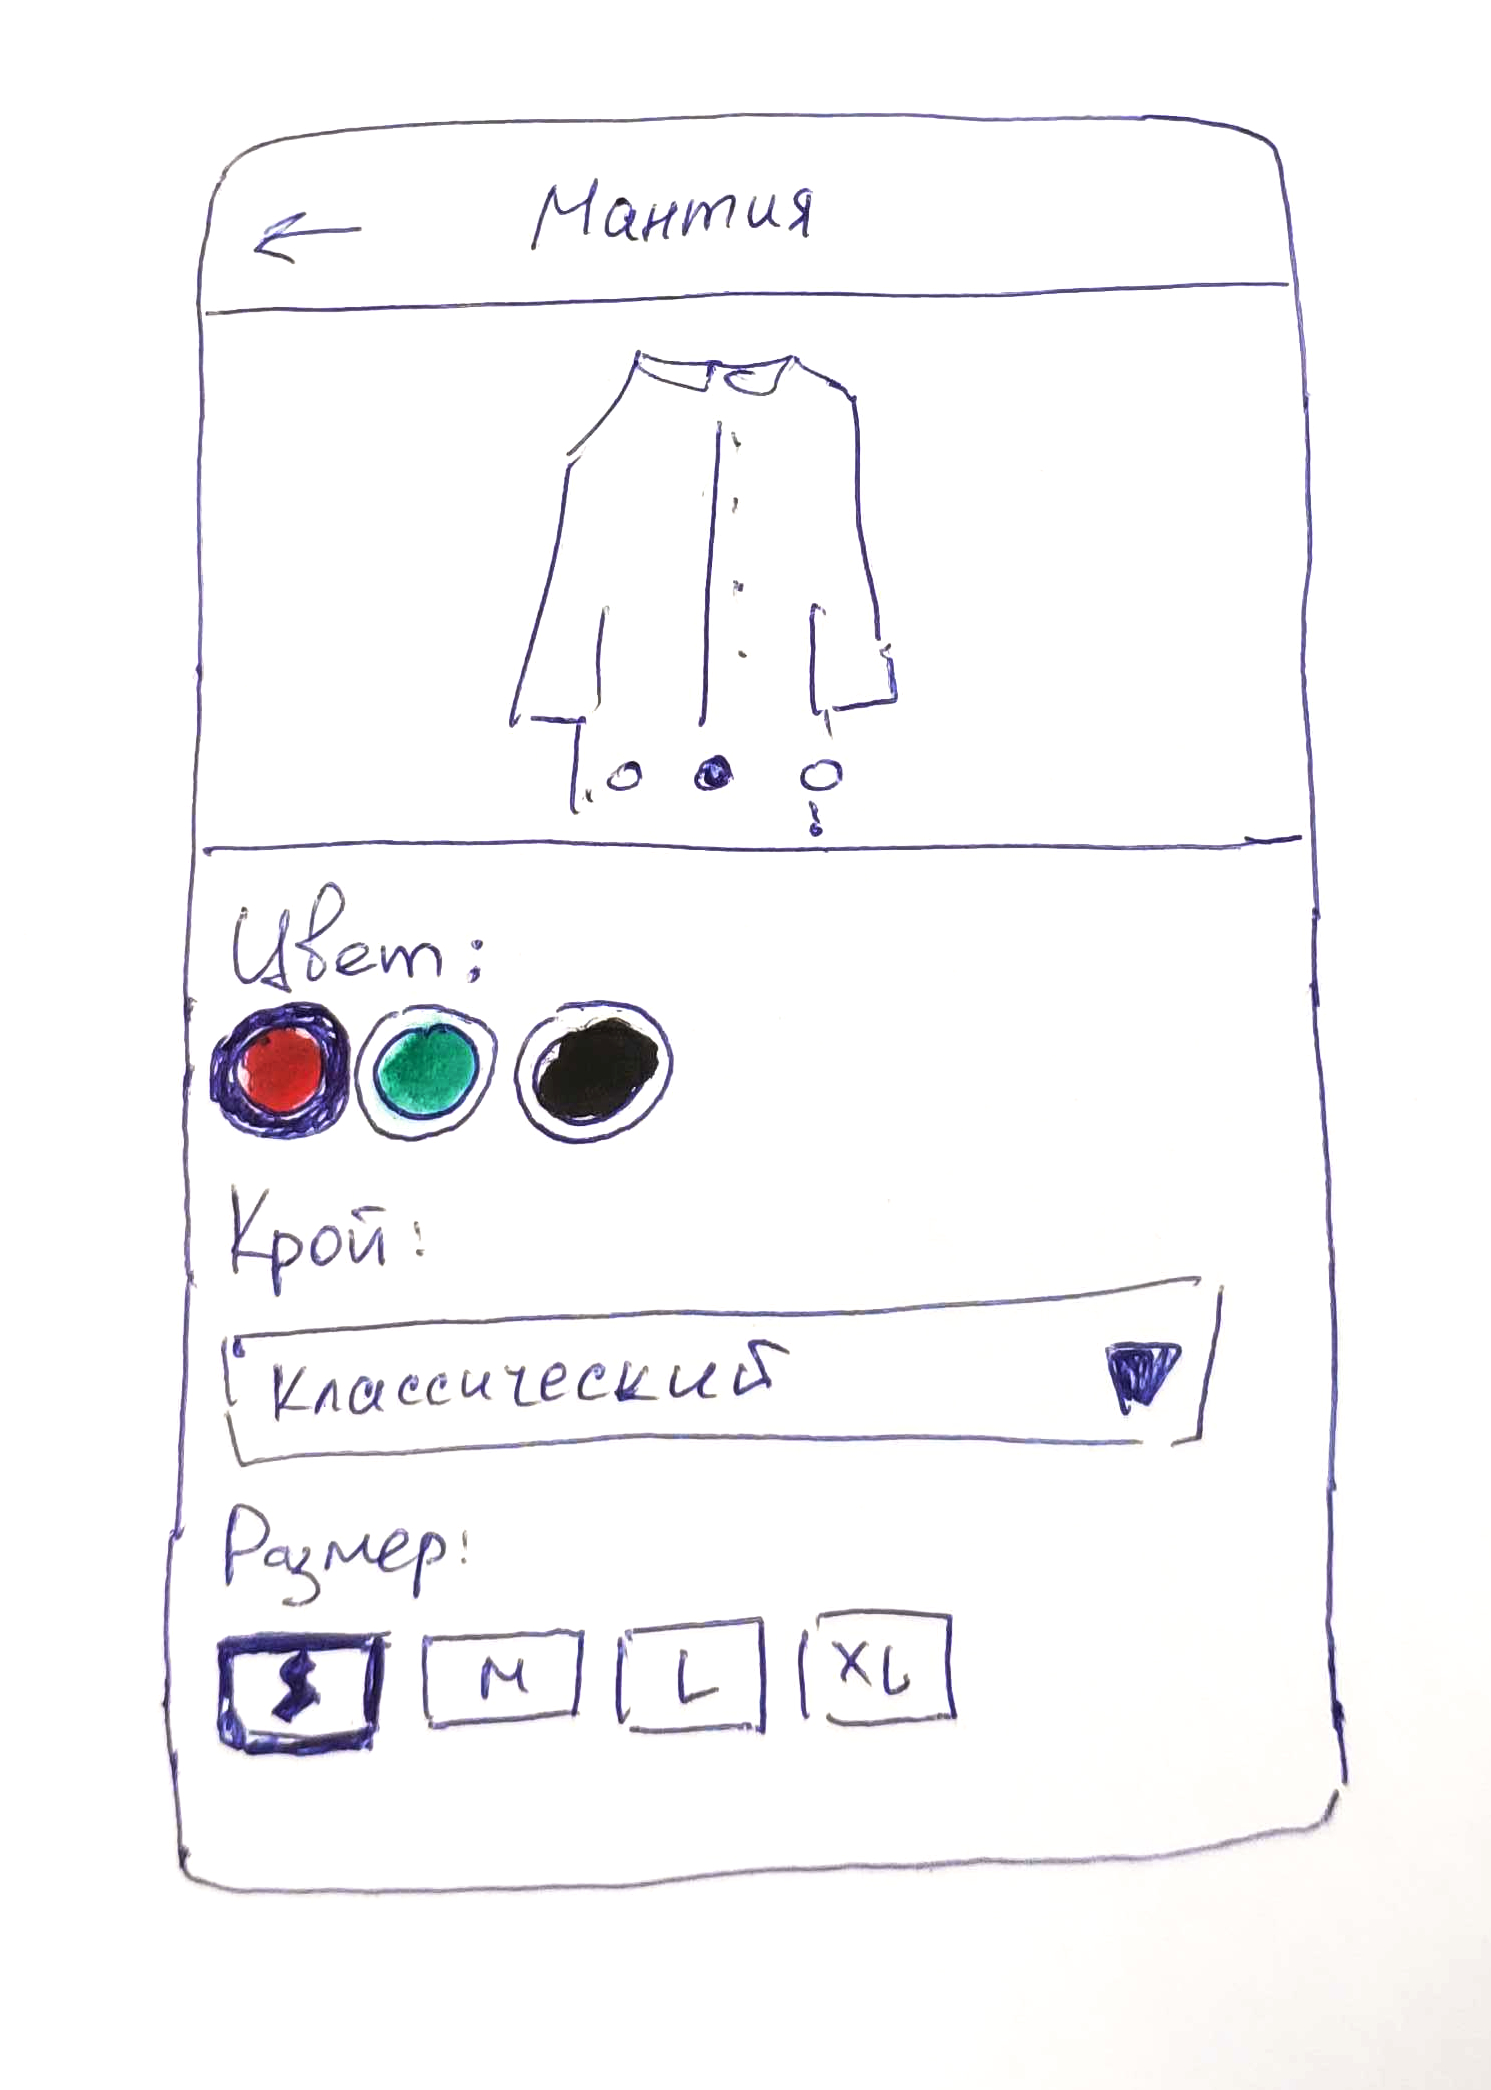 Мантия
Цвет:
Крой:
Классический
Размер:
S M L XL